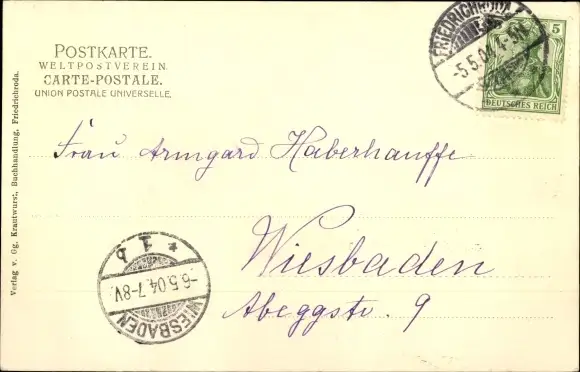 POSTKARTE.
WELTPOSTVEREIN.
CARTE-POSTALE.
UNION POSTALE UNIVERSELLE.
FRIEDRICHRODA
-5.5.04.4-5N.
5
DEUTSCHES REICH
Frau Armgard Haberhauffe
Wiesbaden
Abeggstr. 9
* 1 b
-6.5.04.7-8V.
WIESBADEN
Verlag v. Gg. Krantwurst, Buchhandlung, Friedrichroda.